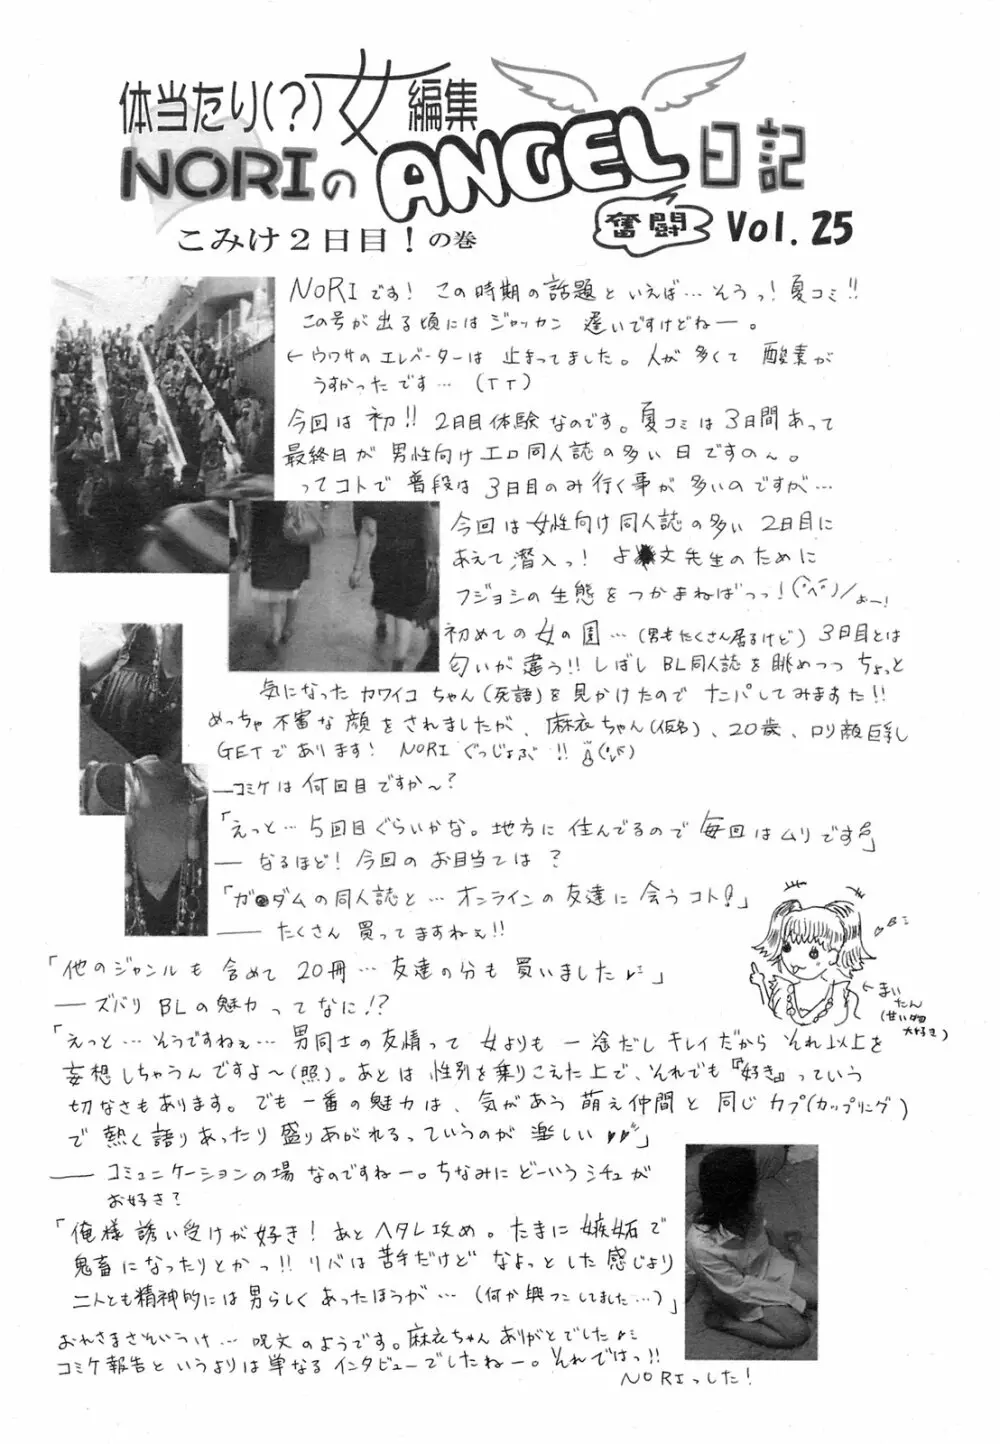 体当たり(?)女編集
NORIのANGEL日記
奮闘 Vol.25
こみけ2日目!の巻
NORIです! この時期の話題といえば…そうっ!夏コミ!!
この号が出る頃にはジャッカン 遅いですけどねー。
←ウワサのエレベーターは 止まってました。人が多くて 酸素が
うすかったです…(TT)
今回は初!! 2日目体験なのです。夏コミは3日間あって
最終日が男性向けエロ同人誌の多い日ですの〜。
ってコトで普段は3日目のみ行く事が多いのですが…
今回は女性向け同人誌の多い2日目に
あえて潜入っ! よ 文先生のために
フジョシの生態をつかまねばっっ!
初めての女の園…(男もたくさん居るけど)3日目とは
匂いが違う!! しばしBL同人誌を眺めつつちょっと
気になったカワイコちゃん(死語)を見かけたのでナンパしてみますた!!
めっちゃ不審な顔をされましたが、麻衣ちゃん(仮名)、20歳、ロリ顔巨乳
GETであります! NORIぐっじょぶ!!
—コミケは何回目ですか〜?
「えっと…5回目ぐらいかな。地方に住んでるので毎回はムリです」
—なるほど!今回のお目当ては?
「ガ●ダムの同人誌と…オンラインの友達に会うコト!」
—たくさん買ってますねぇ!!
「他のジャンルも含めて20冊…友達の分も買いました♪」
—ズバリBLの魅力ってなに!?
←まい
たん
(甘い物
大好き)
「えっと…そうですねぇ…男同士の友情って女よりも一途だしキレイだからそれ以上を
妄想しちゃうんですよ〜(照)。あとは性別を乗りこえた上で、それでも『好き』っていう
切なさもあります。でも一番の魅力は、気があう萌え仲間と同じカプ(カップリング)
で熱く語りあったり盛りあがれるっていうのが楽しい♥♥」
—コミュニケーションの場なのですねー。ちなみにどーいうシチュが
お好き?
「俺様誘い受けが好き!あとヘタレ攻め。たまに嫉妬で
鬼畜になったりとかっ!!リバは苦手だけどなよっとした感じより
二人とも精神的には男らしくあったほうが…(何か興フンしてました…)」
おれさまさそいうけ…呪文のようです。麻衣ちゃんありがとでした♪
コミケ報告というよりは単なるインタビューでしたねー。それではっ!!
NORIっした!